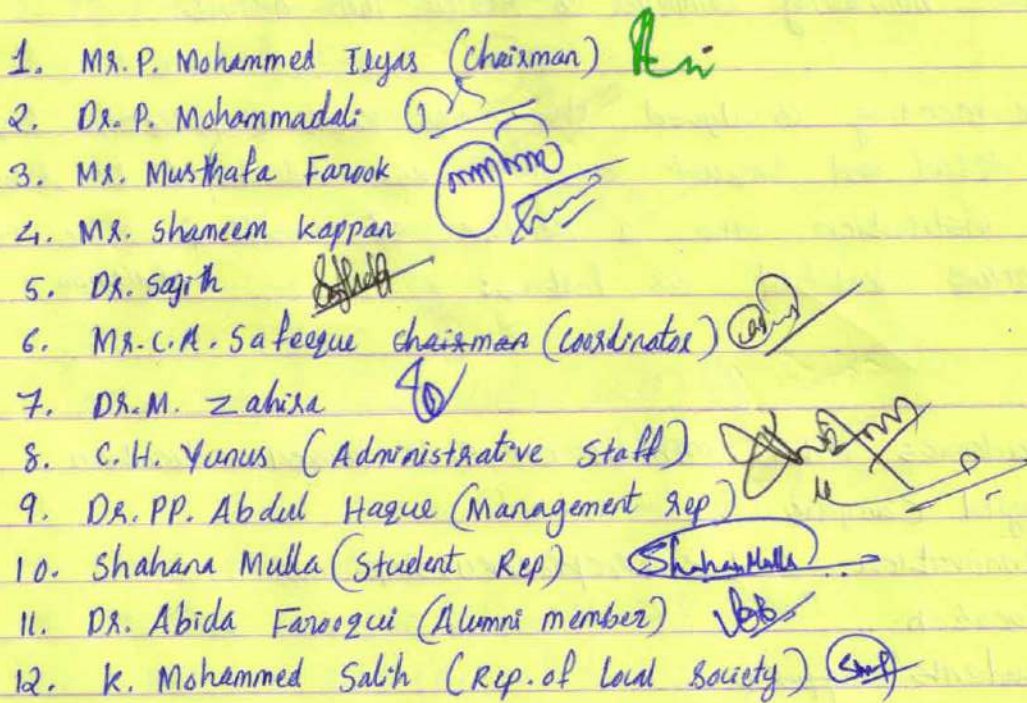 1. Mr. P. Mohammed Ilyas (Chairman)
2. Dr. P. Mohammadali
3. Mr. Musthafa Farook
4. Mr. Shameem Kappan
5. Dr. Sajith
6. Mr. C.A. Safeeque chairman (coordinator)
7. Dr. M. Zahira
8. C.H. Yunus (Administrative Staff)
9. Dr. PP. Abdul Haque (Management rep)
10. Shahana Mulla (Student Rep) Shahana Mulla
11. Dr. Abida Farooqui (Alumni member)
12. K. Mohammed Salih (Rep. of local society)